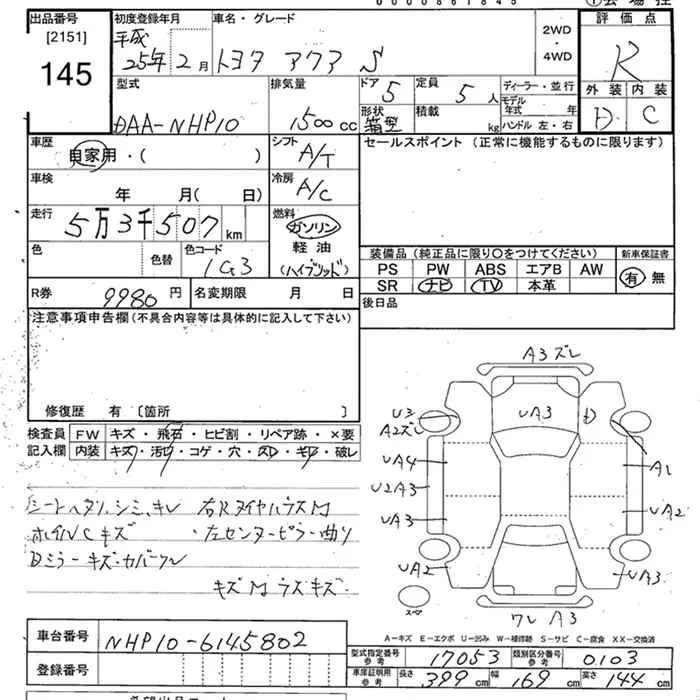 0000861845
出品番号 初度登録年月 車名・グレード 2WD・4WD 評価点
[2151]
145
平成25年2月 トヨタ アクア S
R
型式 排気量 ドア 定員 ディーラー・並行 外装 内装
DAA-NHP10 1500cc 5 5人 モデル年式 年
形状 箱型 積載 kg ハンドル 左・右
D C
車歴 自家用・( ) シフト A/T
セールスポイント (正常に機能するものに限ります)
車検 年 月( 日) 冷房 A/C
走行 5万3千507km 燃料 ガソリン
軽油
(ハイブリッド)
色 色替 色コード 1G3
装備品 (純正品に限り○をつけてください) 新車保証書
PS PW ABS エアB AW 有 無
SR ナビ TV 本革
R券 9980円 名変期限 月 日 後日品
注意事項申告欄(不具合内容等は具体的に記入して下さい)
修復歴 有 〔箇所 〕
検査員 FW キズ・飛石・ヒビ割・リペア跡・×要
記入欄 内装 キズ・汚レ・コゲ・穴・スレ・ギレ・破レ
シートヘタリ、シミ、キレ 右Rタイヤハウス M
ホイルC キズ ・左センターピラー曲リ
Dミラーキズ・カバーワレ
キズ M ラスキズ
A3 ズレ
UA3
U3
A2ズレ
D
UA4
A1
U2A3
UA3
UA2
UA2
UA3
スペア
ワレ A3
A-キズ E-エクボ U-凹み W-補修跡 S-サビ C-腐食 XX-交換済
車台番号 NHP10-6145802
登録番号
型式指定番号 参考 17053 類別区分番号 参考 0103
車庫証明用 参考 長さ 399cm 幅 169cm 高さ 144cm